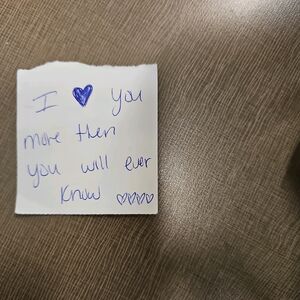 I ♥ you
more then
you will ever
know ♡♡♡♡